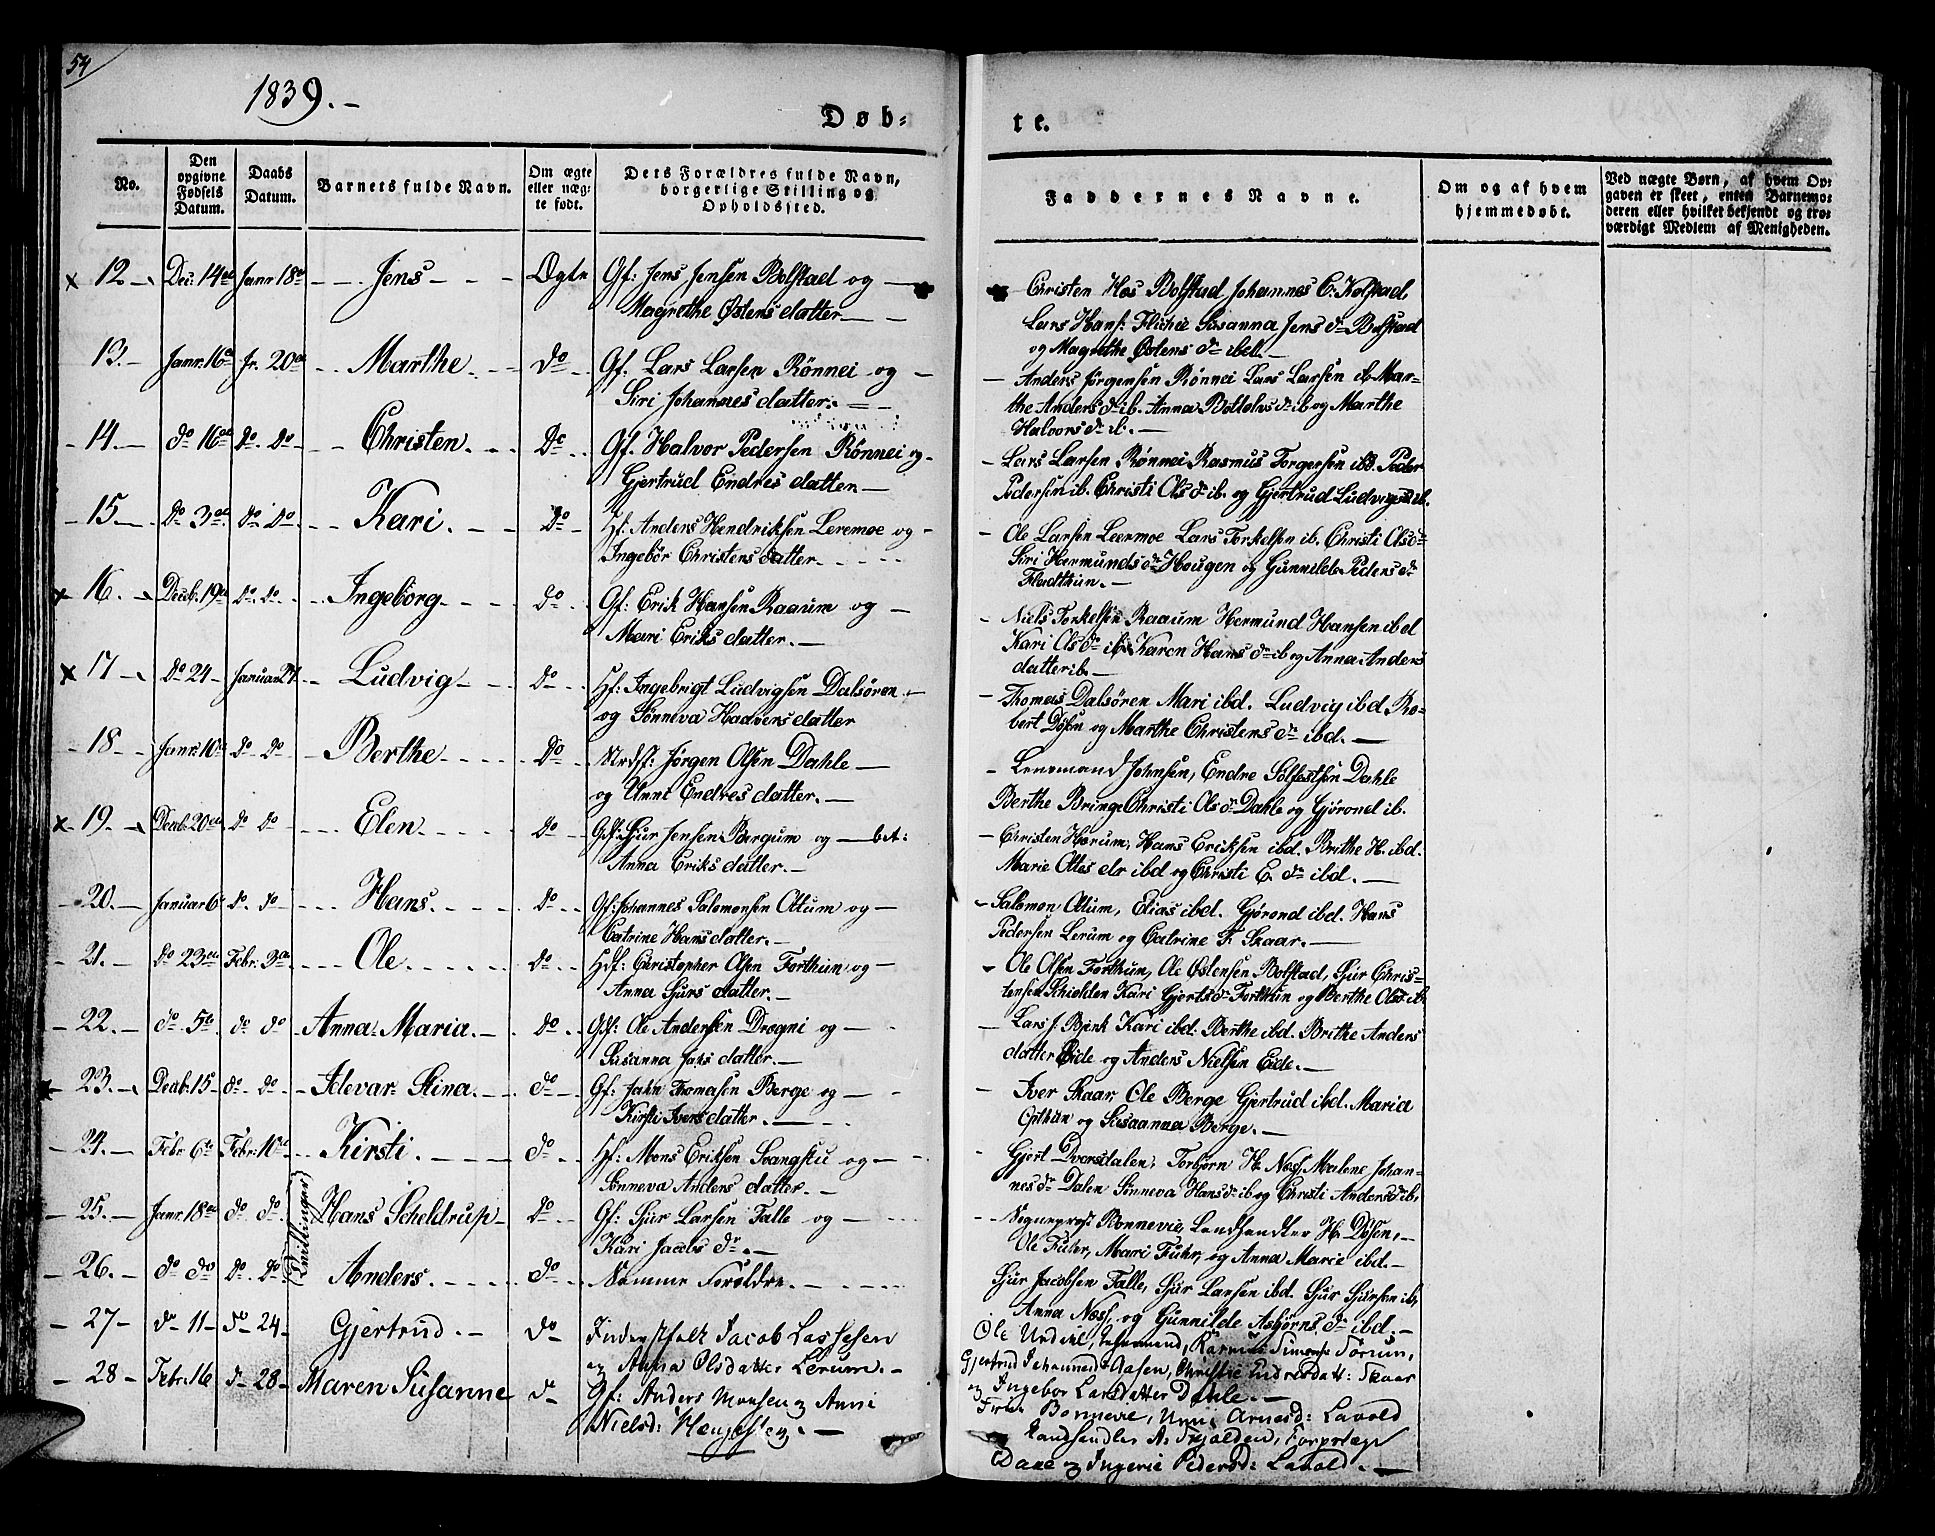 54
1839.-
Døb-
te.
No.
Den opgivne Fødsels Datum.
Daabs Datum.
Barnets fulde Navn.
Om ægte eller uægte født.
Dets Forældres fulde Navn, borgerlige Stilling og Opholdssted.
Faddernes Navne.
Om og af hvem hjemmedøbt.
Ved uægte Børn, af hvem Opgaven er skeet, enten Barnemoderen eller hvilket bekjendt og troværdigt Medlem af Menigheden.
x 12 - Dec: 14de Janr 18de - Jens - Øgte Gf: Jens Jensen Bolstad og -
Magrethe Østens datter -
Christen Hos Bolstad Johannes C. Kolstad,
Lars Hans: Susanna Jens dr Bolstad
og Magrethe Østens dr ibd. -
13. - Janr: 16de fr. 20de - Marthe - do - Gf: Lars Larsen Rönnei og -
Siri Johannes datter. -
- Anders Jørgensen Rönnei Lars Larsen ib. Mar-
the Anders dr ib. Anna Bottolvs dr ib og Marthe
Halvors dr ib. -
- 14. - do 16de do. do - Christen. - Do - Gf. Halvor Pedersen Rönnei og -
Gjertrud Endres datter -
- Lars Larsen Rönnei Rasmus Torgersen ibd. Peder
Pedersen ib. Christi Ols dr ib. og Gjertrud Ludvigsd ib.
- 15 - Do 3de do do - Kari. - Do - Hf: Anders Hendriksen Leremoe og -
Ingebör Christens datter. -
- Ole Larsen Leermoe Lars Torkelsen ib. Christi Olsd
Siri Hermunds dr Hougen og Gunnilde Peders dr
Fladthun. -
x 16. - Decb. 19de do. do. - Ingebörg - do - Gf: Erik Hansen Raaum og -
Mari Eriks datter. -
- Niels Torkelsen Raaum Hermund Hansen ibd
Kari Ols dr ib. Karen Hans dr ib og Anna Anders
datter ib. -
x 17 - do 24 - Januar 27 - Ludvig - do - Hf: Ingebrigt Ludvigsen Dalsören -
og Sönneva Haavens datter
- Thomas Dalsören Mari ibd. Ludvig ibd. Ro-
bert Dösen og Marthe Christens dr ibd. -
- 18 - Janr: 10de do - do - Berthe - Do - Jørgen Olsen Dahle -
og Unni Endres datter. -
- Lensmand Johnsen, Endre Solfestsen Dahle
Berthe Bringe Christi Ols dr Dahle og Gjörond ib.
x 19. - Decb. 20de do do - Elen - do - Gf: Sjur Jensen Bergum og - bet:
Anna Eriks datter. -
- Christen Hærum, Hans Eriksen ibd. Brithe H. ibd.
Marie Ottes dr ibd og Christi E. dr ibd. -
- 20. - Januar 6te do. do - Hans. - do - Gf: Johannes Salomonsen Ottum og -
Catrine Hans datter. -
- Salomon Ottum, Elias ibd. Gjörond ibd. Hans
Pedersen Lerum og Catrine F. Skaar. -
- 21. - do 23de Febr. 3de - Ole - do - Hf: Christopher Olsen Forthun og -
Anna Sjurs datter. -
- Ole Olsen Forthun, Ole Östensen Bolstad, Sjur Chris-
tensen Schielden Kari Gjerts dr Forthun og Berthe Olsd ib
- 22. - do. 5te do do Anna Maria. - do - Ole Andersen Drægni og -
Susanna Jens datter. -
- Lars J. Bjönk Kari ibd. Berthe ibd. Brithe Anders
datter Eide og Anders Nielsen Eide. -
23. - Decb. 15 - do - do - Stina - do - Gf: John Thomasen Berge og -
Kirsti Ivers datter. -
- Iver Skaar Ole Berge Gjertrud ibd. Maria
Opthun og Susaanna Berge. -
- 24. - Febr 6te Febr. 10de - Kirsti. - do - Hf: Mons Eriksen Svangstu og -
Sönneva Anders datter. -
- Gjert Dvorsdalen, Torbjørn H. Næss, Malene Johan-
nes dr Dalen Sönneva Hans dr ib og Christi Anders d ib.
- 25. - Janr. 18de do do. - (Tvillinger) Hans Scheldrup - do - Gf: Sjur Larsen Talle og -
Kari Jacobs dr. -
- Sogneprest Bonnevie, Landhandler H. Dösen, -
Ole Fuhr, Mari Fuhr, og Anna Marie ibd. -
- 26. - do do do. do - Anders. - do - Samme Foreldre. -
Sjur Jacobsen Talle, Sjur Larsen ibd. Sjur Sjursen ib,
Anna Næss, og Gunnilde Asbjørns dr ibd. -
- 27 - do - 11 - do - 24 - Gjertrud. - do Inderstfolk Jacob Lassesen
og Anna Olsdatter Lerum. -
Ole Urdvel, Lensmand, Rasmus Simonsen Torrum,
Gjertrud Johannesd Aasen, Christie Endresdatt: Skaar
og Ingebor Larsdatter Dahle. -
- 28 - Febr. 16 do - 28 - Maren Susanne do - Gf: Anders Monsen og Anni
Nielsd: Hæugsteg. -
Bonnevie, Unni Arnesd: Lavold
Landhandler A. Skjolden,
Dane og Ingerie Pedersd: Lavold. -